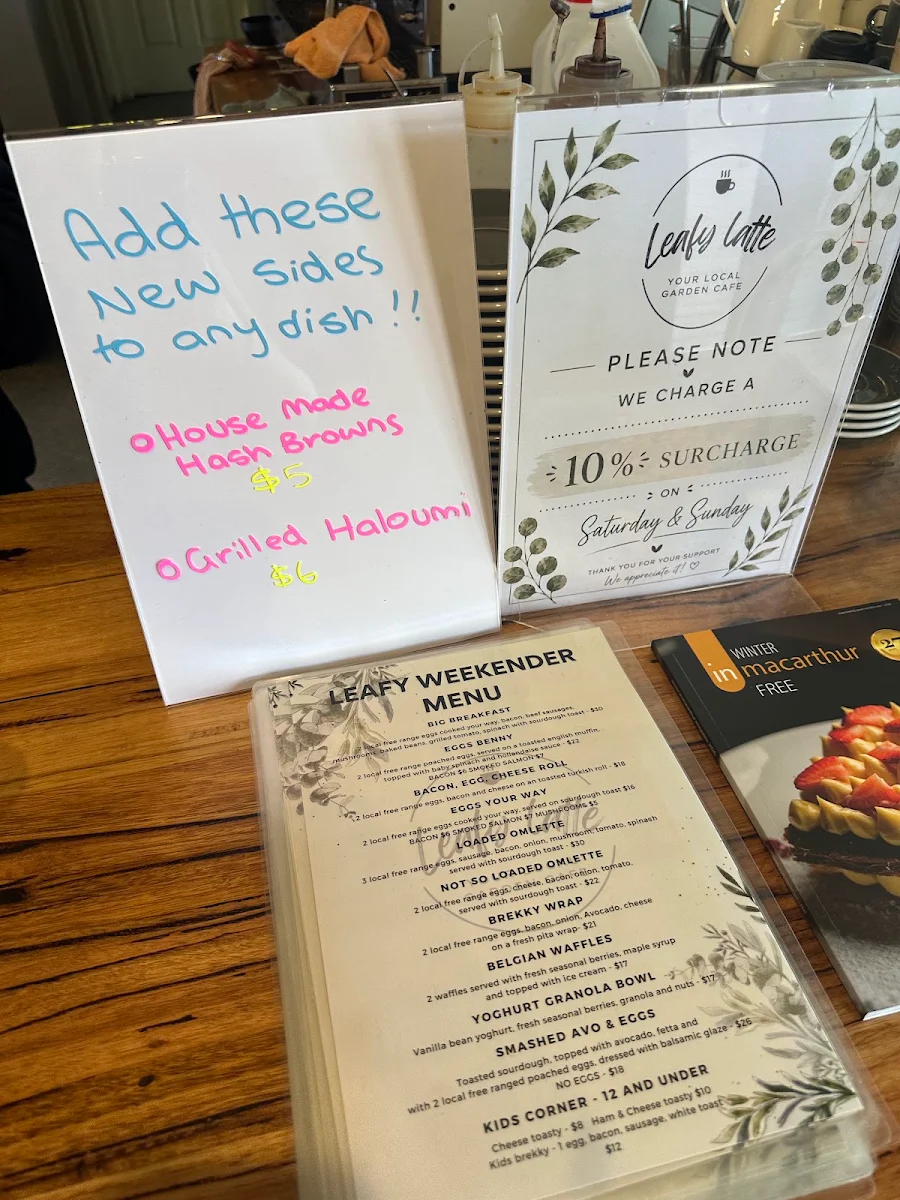 Add these
New Sides
to any dish!!
House made
Hash Browns
$5
Grilled Haloumi
$6
Leafy Latte
YOUR LOCAL
GARDEN CAFE
PLEASE NOTE
WE CHARGE A
10% SURCHARGE
ON
Saturday & Sunday
THANK YOU FOR YOUR SUPPORT
We appreciate it!
LEAFY WEEKENDER
MENU
BIG BREAKFAST
local free range eggs cooked your way, bacon, beef sausages,
mushrooms, baked beans, grilled tomato, spinach with sourdough toast - $30
EGGS BENNY
2 local free range poached eggs, served on a toasted english muffin,
topped with baby spinach and hollandaise sauce - $22
BACON $6 SMOKED SALMON $7
BACON, EGG, CHEESE ROLL
2 local free range eggs, bacon and cheese on an toasted turkish roll - $18
EGGS YOUR WAY
2 local free range eggs cooked your way, served on sourdough toast $16
BACON $6 SMOKED SALMON $7 MUSHROOMS $5
LOADED OMLETTE
3 local free range eggs, sausage, bacon, onion, mushroom, tomato, spinash
served with sourdough toast - $30
NOT SO LOADED OMLETTE
2 local free range eggs, cheese, bacon, onion, tomato.
served with sourdough toast - $22
BREKKY WRAP
2 local free range eggs, bacon, onion, Avocado, cheese
on a fresh pita wrap- $21
BELGIAN WAFFLES
2 waffles served with fresh seasonal berries, maple syrup
and topped with ice cream - $17
YOGHURT GRANOLA BOWL
Vanilla bean yoghurt, fresh seasonal berries, granola and nuts - $17
SMASHED AVO & EGGS
Toasted sourdough, topped with avocado, fetta and
with 2 local free ranged poached eggs, dressed with balsamic glaze - $26
NO EGGS - $18
KIDS CORNER - 12 AND UNDER
Cheese toasty - $8 Ham & Cheese toasty $10
Kids brekky - 1 egg, bacon, sausage, white toast
$12
Leafy Latte
WINTER
in macarthur
FREE
27